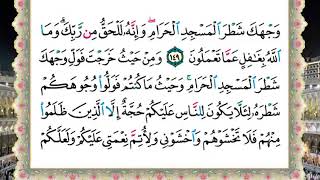 وَجْهَكَ شَطْرَ الْمَسْجِدِ الْحَرَامِ ۖ وَإِنَّهُ لَلْحَقُّ مِن رَّبِّكَ ۗ وَمَا
اللَّهُ بِغَافِلٍ عَمَّا تَعْمَلُونَ ١٤٩ وَمِنْ حَيْثُ خَرَجْتَ فَوَلِّ وَجْهَكَ
شَطْرَ الْمَسْجِدِ الْحَرَامِ ۚ وَحَيْثُ مَا كُنتُمْ فَوَلُّوا وُجُوهَكُمْ
شَطْرَهُ لِئَلَّا يَكُونَ لِلنَّاسِ عَلَيْكُمْ حُجَّةٌ إِلَّا الَّذِينَ ظَلَمُوا
مِنْهُمْ فَلَا تَخْشَوْهُمْ وَاخْشَوْنِي وَلِأُتِمَّ نِعْمَتِي عَلَيْكُمْ وَلَعَلَّكُمْ